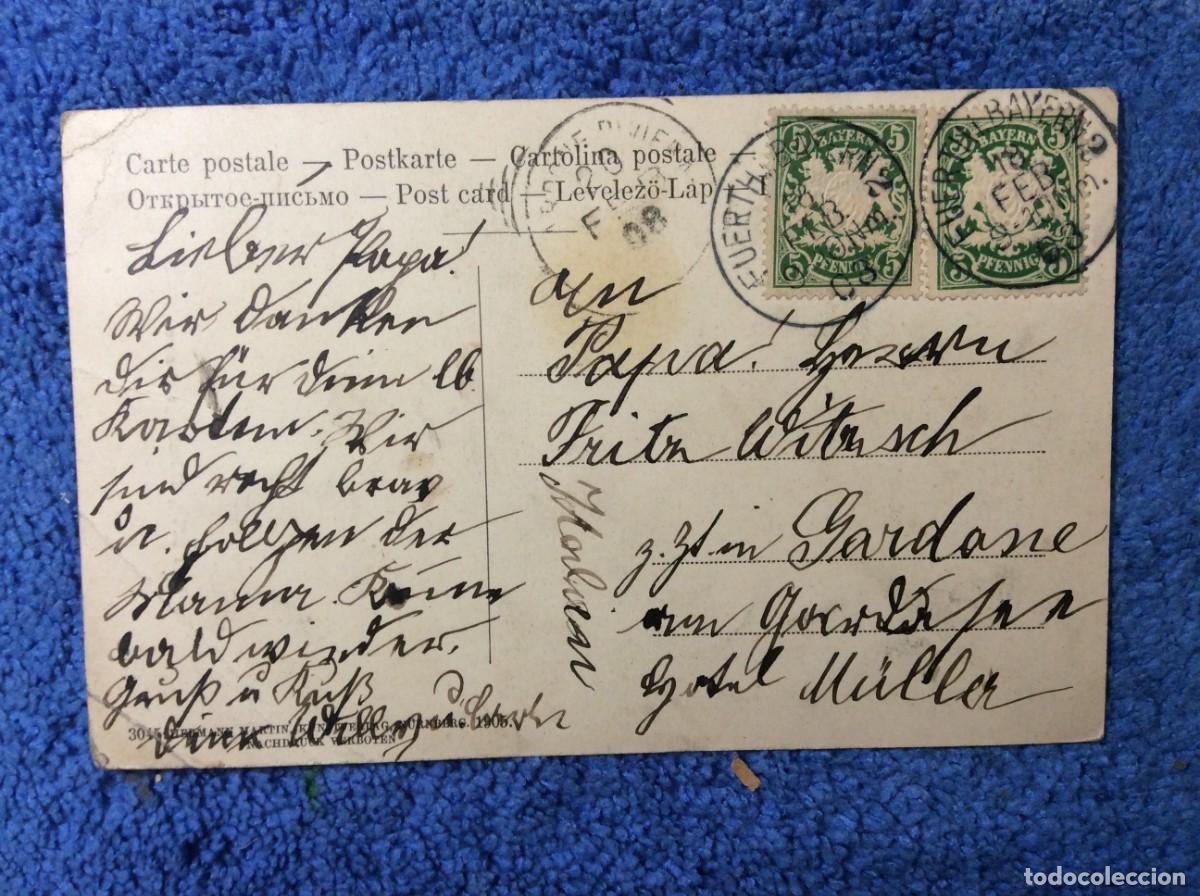 Carte postale — Postkarte — Cartolina postale —
Открытое-письмо — Post card — Levelező-Lap —
Lieber Papa!
Wir danken
dir für deine lb.
Karten. Wir
sind recht brav
u. folgen der
Mama. Komme
bald wieder.
Gruß u Kuß
dein Willy u
3045 HERMANN MARTIN, KUNSTVERLAG, NÜRNBERG. 1905.
NACHDRUCK VERBOTEN
5 BAYERN 5
5 PFENNIG 5
BAYERN 5
PFENNIG
FUERTH(BAYERN)2
FEB
08
FUERTH(BAYERN)2
13
FEB
08
20
08
An
Papa! Herrn
Fritz
z. Zt. in Gardone
am Gardasee
Hotel Müller
Italien
todocoleccion